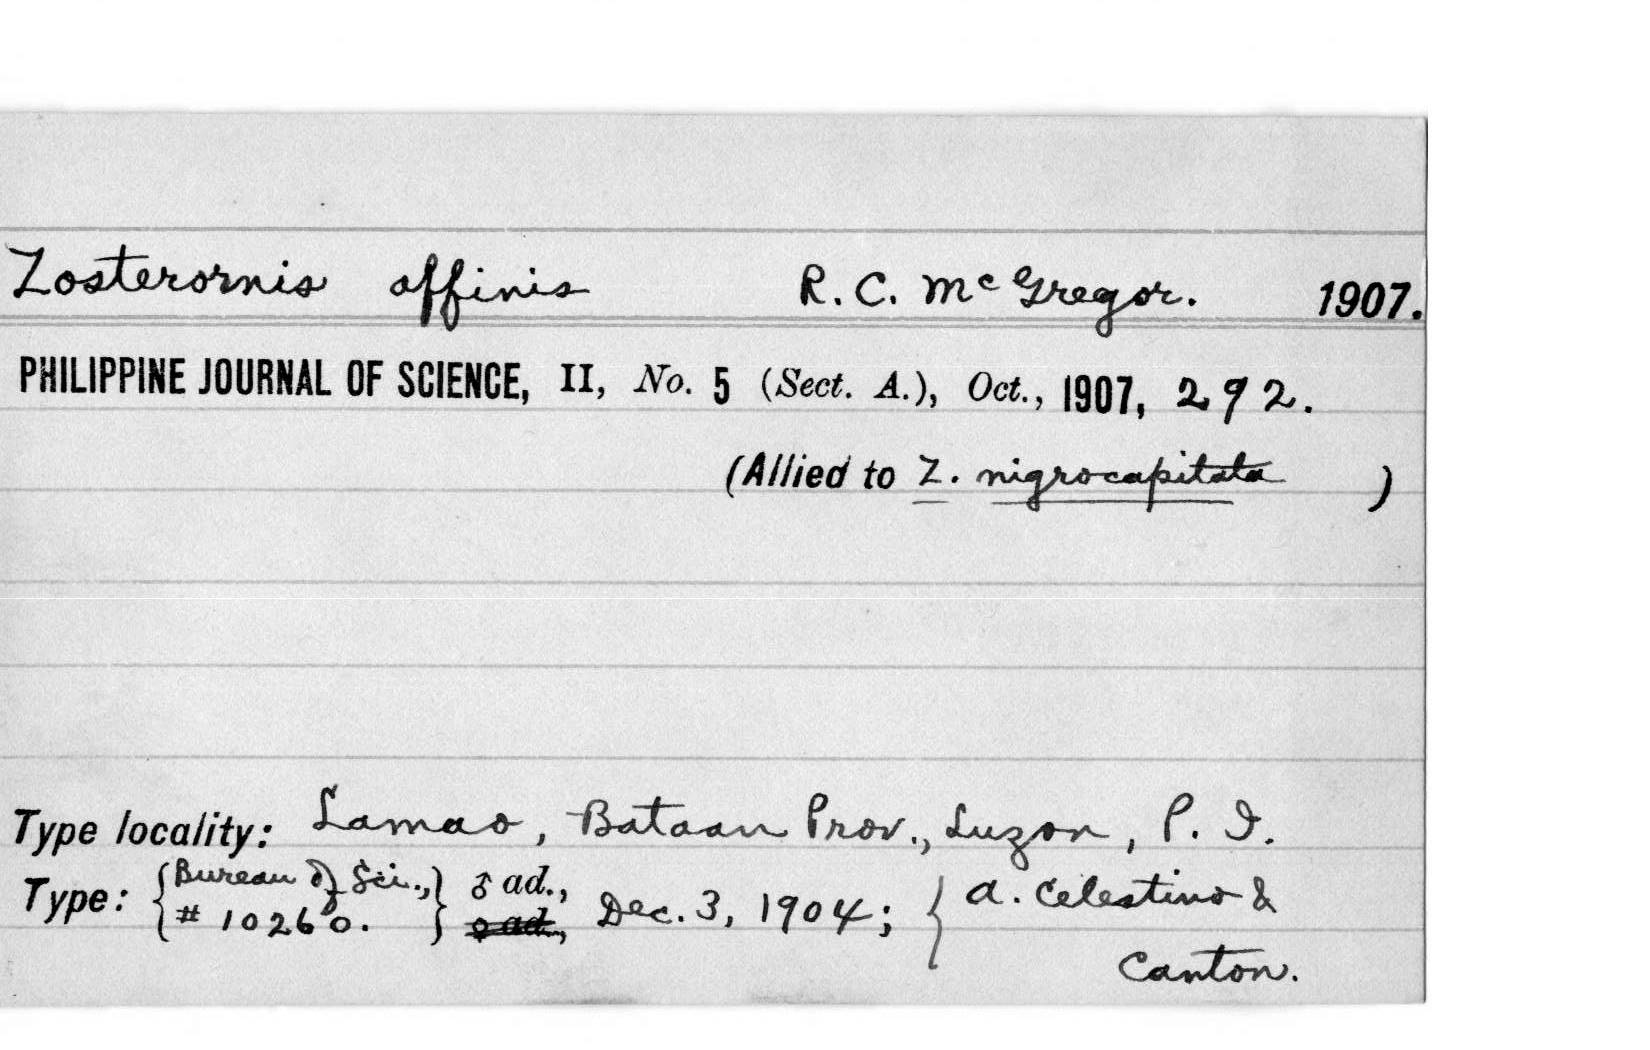 Zosterornis affinis R. C. McGregor. 1907.
PHILIPPINE JOURNAL OF SCIENCE, II, No. 5 (Sect. A.), Oct., 1907, 292.
(Allied to Z. nigrocapitata )
Type locality: Lamao, Bataan Prov., Luzon, P. I.
Type: {Bureau of Sci., # 10260.} ♂ ad., ♀ ad., Dec. 3, 1904; { A. Celestino &
Canton.